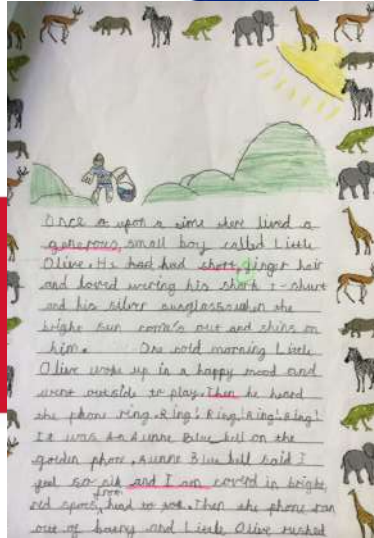 Once a upon a time there lived a
generous, small boy called Little
Olive. He had had short, ginger hair
and loved wering his shark T-shurt
and his silver sunglass when the
bright sun come's out and shins on
him. One cold morning Little
Olive woke up in a happy mood and
went outside to play. Then he heard
the phone ring. Ring! Ring! Ring! Ring!
It was An Aunne Blue bell on the
golden phone. Aunne Blue bell said I
feel so sik and I am coverd in bright
red spots from head to toe. Then the phone ran
out of batry and Little Olive rushed